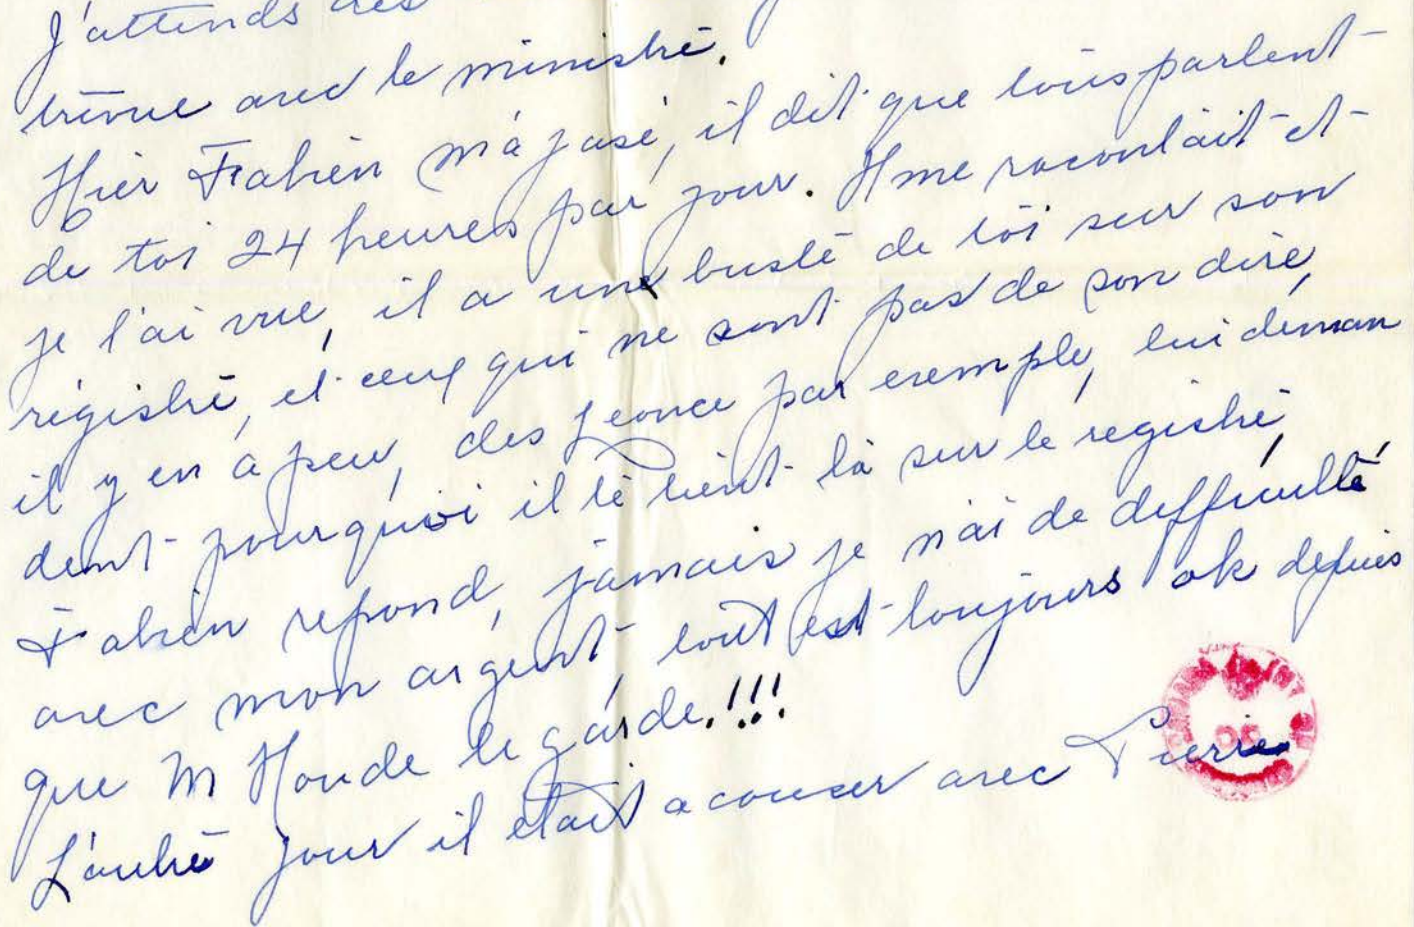 J'attends des
trouve avec le ministre.
Hier Fabien m'a jasé, il dit que tous parlent
de toi 24 heures par jour. Il me racontait et
je l'ai vue, il a une buste de toi sur son
régistre, et ceux qui ne sont pas de son dire,
il y en a peu, des jeunce par exemple, lui deman
dent pourquoi il te tient là sur le registre,
Fabien repond, jamais je n'ai de difficulté
avec mon argent, tout est toujours ok depuis
que M Houde le garde.!!!
L'autre jour il était a couser avec Pierre
95